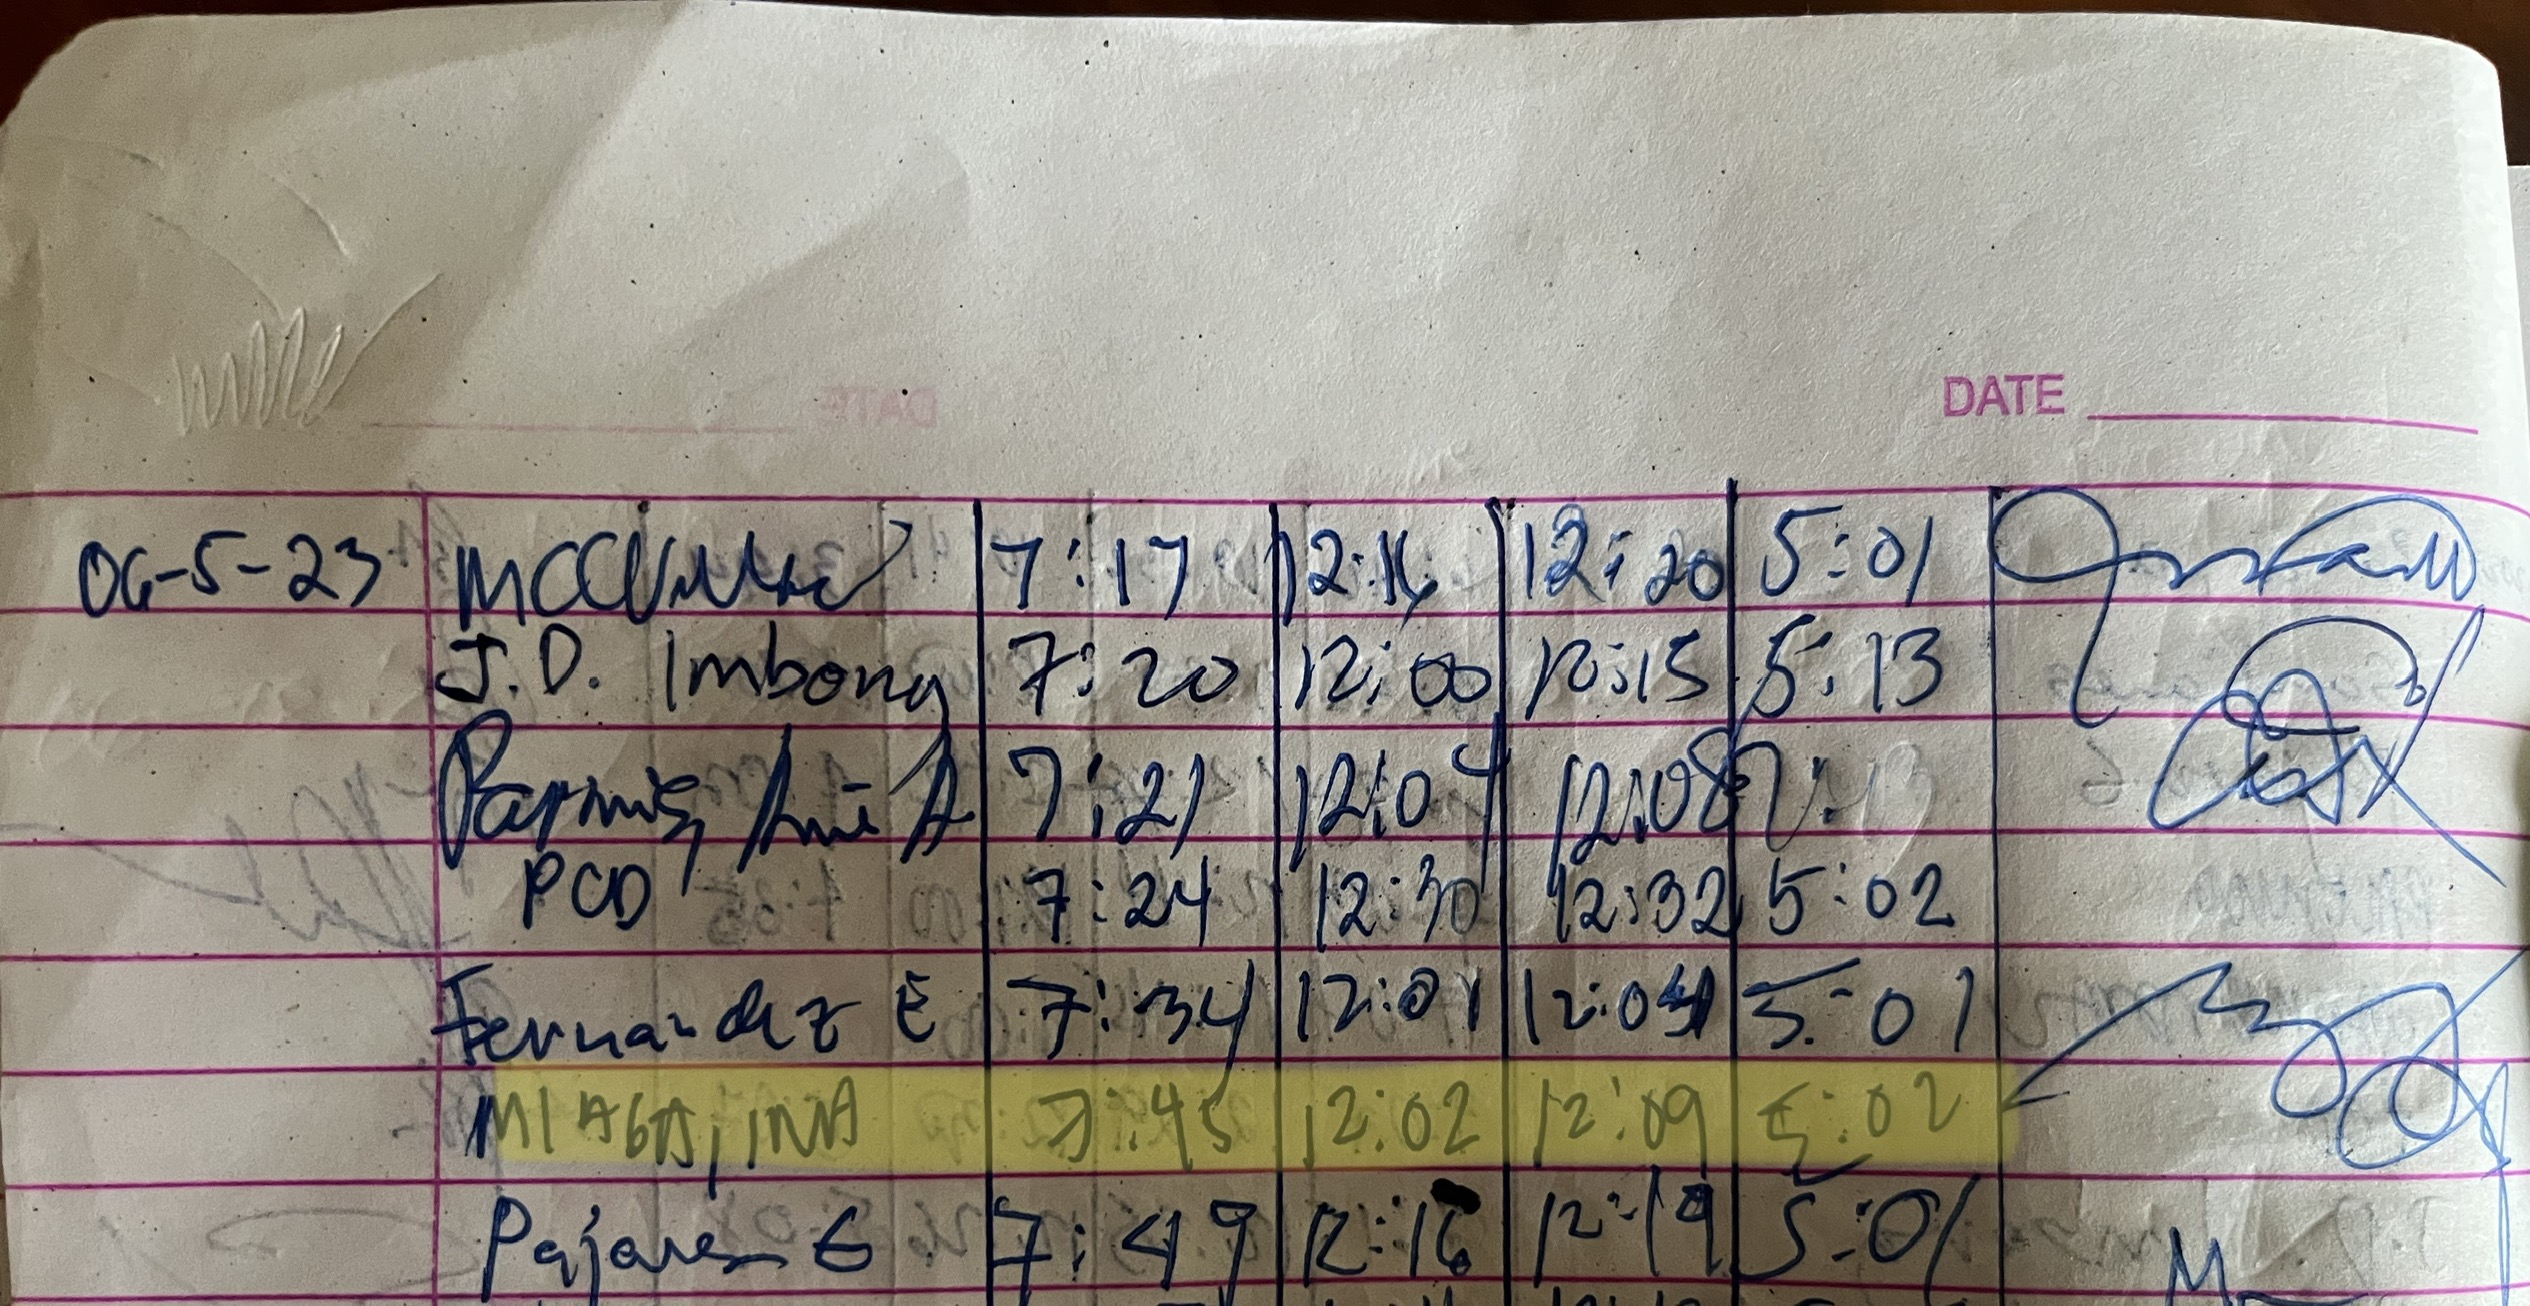 DATE
06-5-23 7:17 12:16 12:20 5:01
J.D. Imbong 7:20 12:00 12:15 5:13
7:21 12:04 12:08
PCD 7:24 12:30 12:32 5:02
Fernandez E 7:34 12:01 12:04 5:01
MIAGA, INA 7:45 12:02 12:09 5:02
Pajares G 7:49 12:16 12:19 5:01